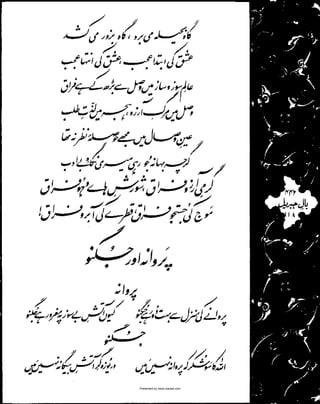 گاہ بحیلہ می برد، گاہ بزور می کشد
عشق کی ابتدا عجب، عشق کی انتہا عجب
عالمِ سوز و ساز میں وصل سے بڑھ کے ہے فراق
وصل میں مرگِ آرزو، ہجر میں لذّتِ طلب
عینِ وصال میں مجھے حوصلۂ نظر نہ تھا
گرچہ بہانہ جُو رہی میری نگاہِ بے ادب
گرمیِ آرزو فراق، شورشِ ہاے و ہو فراق
موج کی جستجو فراق، قطرے کی آبرو فراق!
پروانہ اور جگنو
پروانہ
پروانے کی منزل سے بہت دور ہے جگنو کیوں آتشِ بے سوز پہ مغرور ہے جگنو
جگنو
اللہ کا سو شکر کہ پروانہ نہیں میں دریوزہ گرِ آتشِ بیگانہ نہیں میں
بالِ جبریل
Presented by www.ziaraat.com